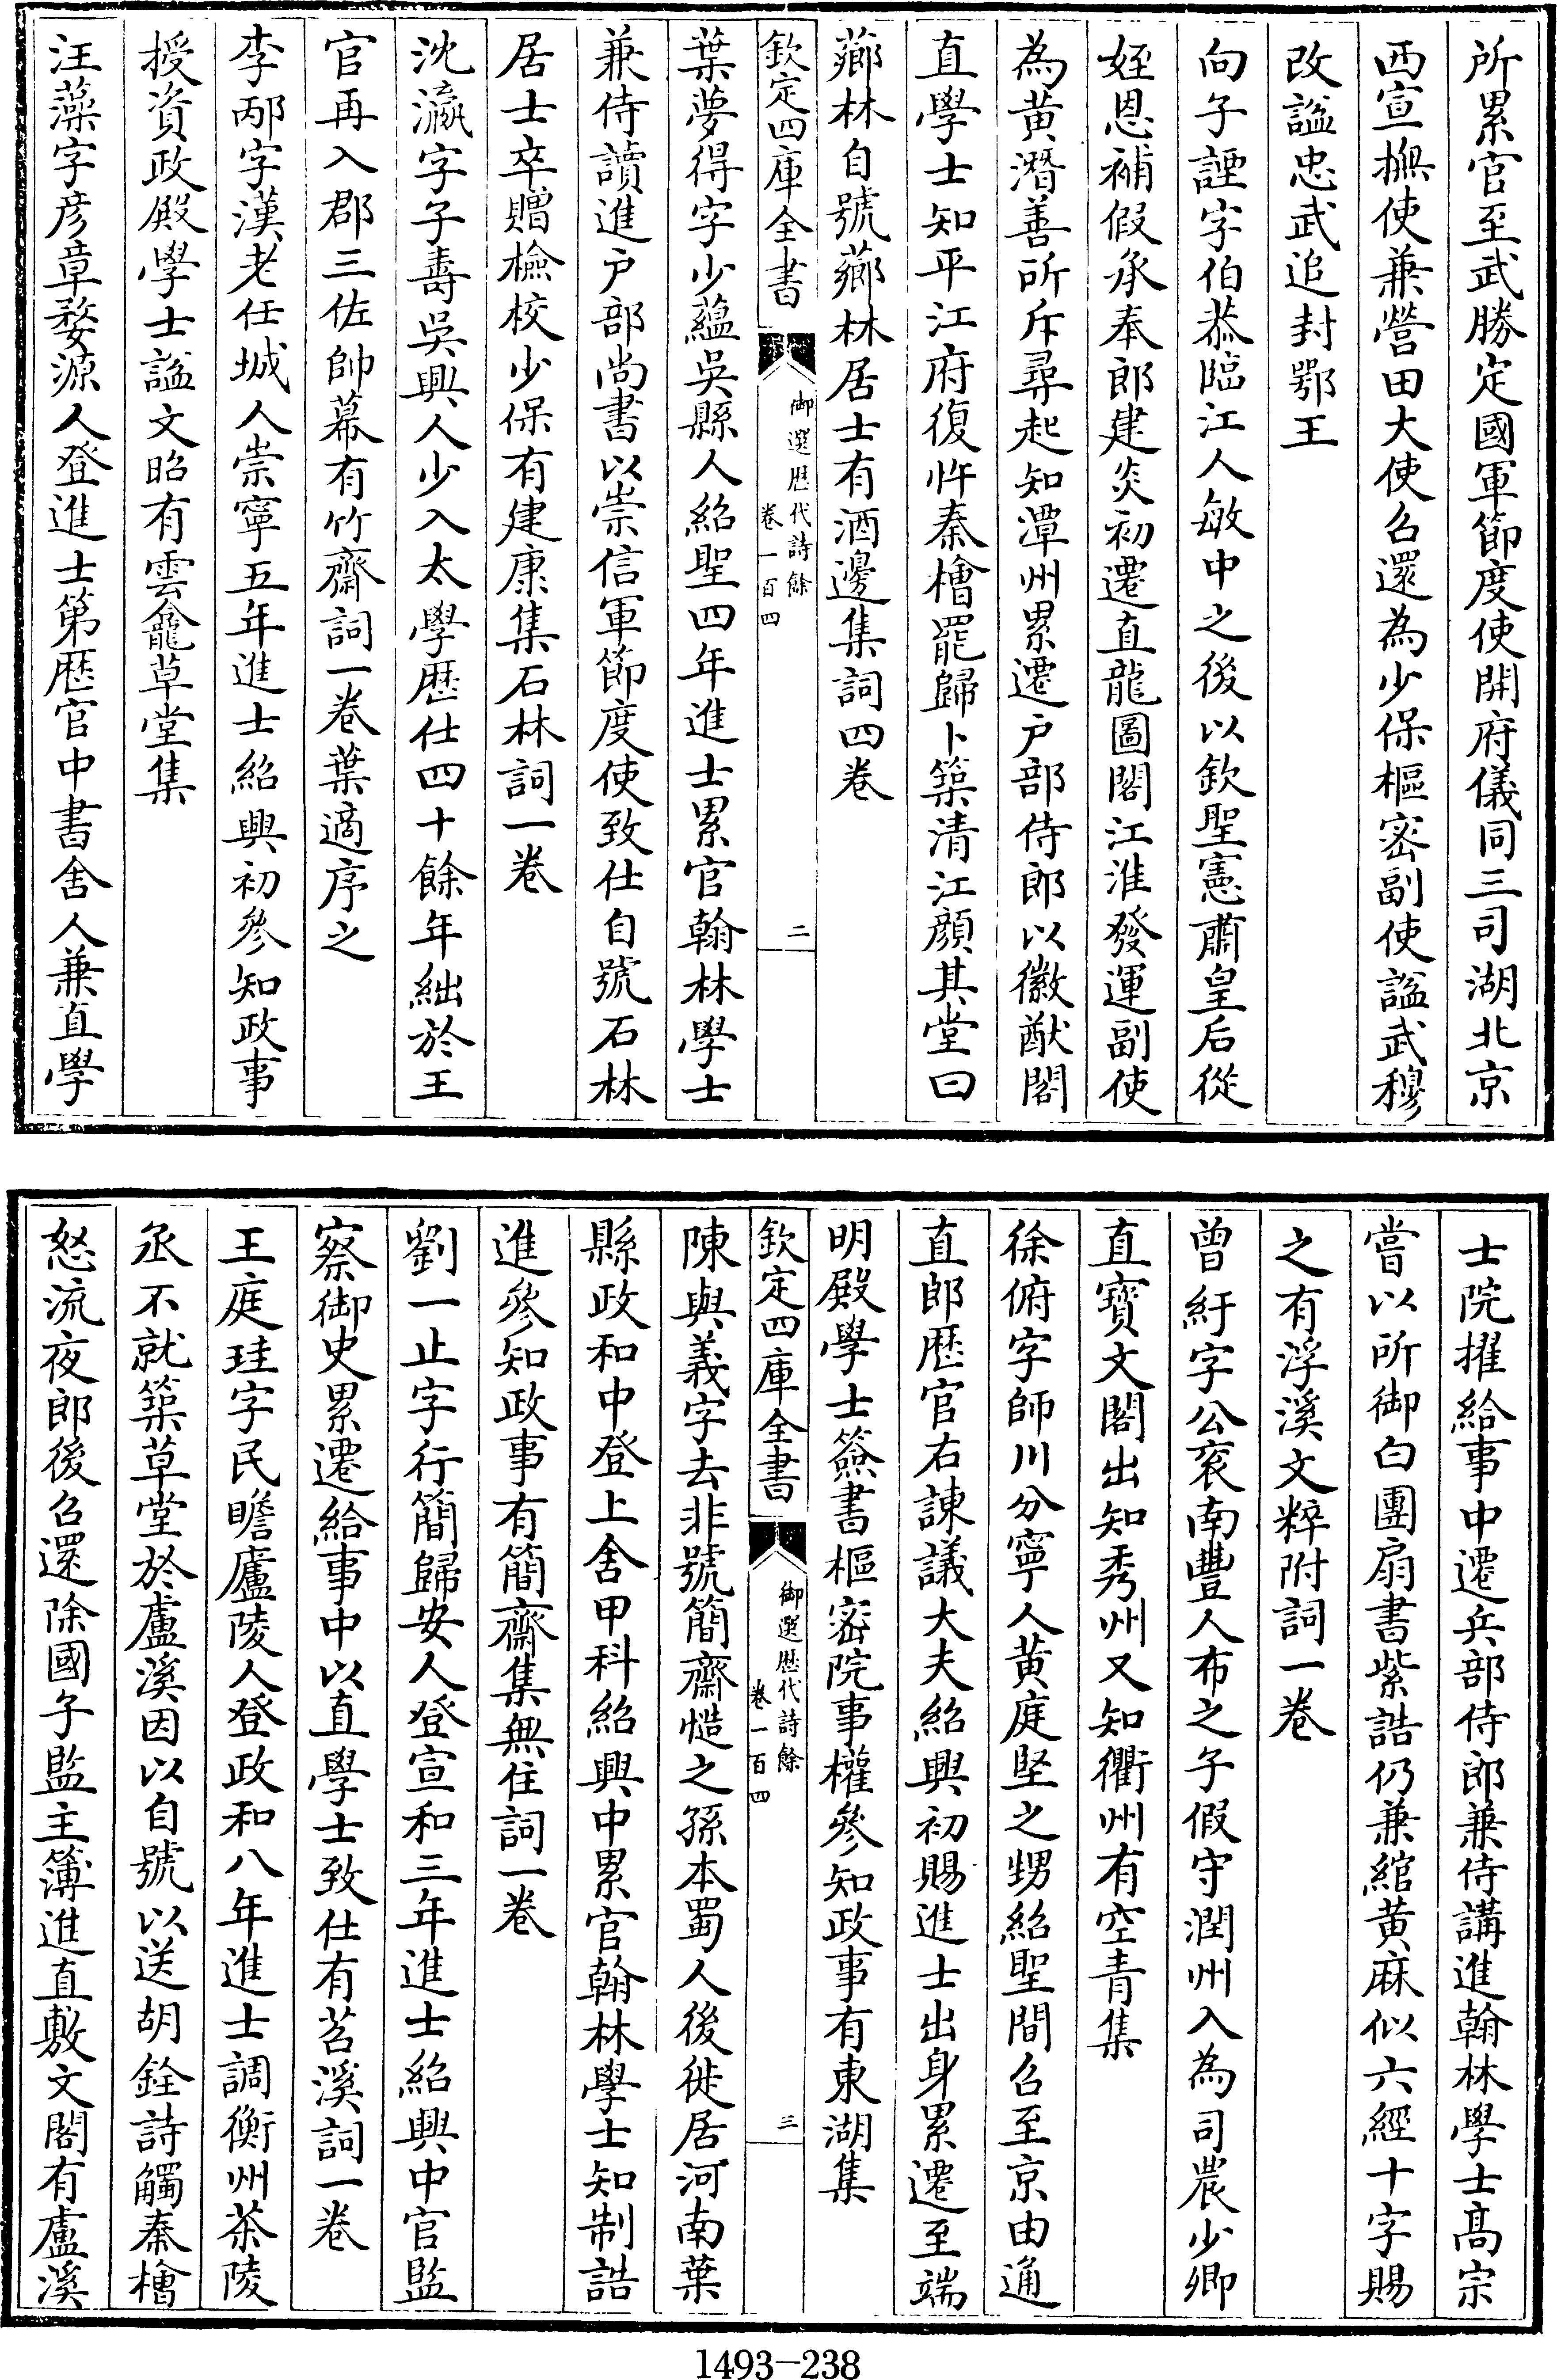 所累官至武勝定國軍節度使開府儀同三司湖北京
西宣撫使兼營田大使召還為少保樞密副使諡武穆
改諡忠武追封鄂王
向子諲字伯恭臨江人敏中之後以欽聖憲肅皇后從
姪恩補假承奉郎建炎初遷直龍圖閣江淮發運副使
為黃潛善所斥尋起知潭州累遷户部侍郎以徽猷閣
直學士知平江府復忤秦檜罷歸卜築清江顔其堂曰
薌林自號薌林居士有酒邊集詞四卷
欽定四庫全書
御選歷代詩餘
卷一百四
二
葉夢得字少蘊吳縣人紹聖四年進士累官翰林學士
兼侍讀進户部尚書以崇信軍節度使致仕自號石林
居士卒贈檢校少保有建康集石林詞一卷
沈瀛字子壽吳興人少入太學歷仕四十餘年絀於王
官再入郡三佐帥幕有竹齋詞一卷葉適序之
李邴字漢老任城人崇寧五年進士紹興初參知政事
授資政殿學士諡文昭有雲龕草堂集
汪藻字彥章婺源人登進士第歷官中書舍人兼直學
士院擢給事中遷兵部侍郎兼侍講進翰林學士髙宗
嘗以所御白團扇書紫誥仍兼綰黃麻似六經十字賜
之有浮溪文粹附詞一卷
曾紆字公袞南豐人布之子假守潤州入為司農少卿
直寶文閣出知秀州又知衢州有空青集
徐俯字師川分寧人黃庭堅之甥紹聖間召至京由通
直郎歷官右諫議大夫紹興初賜進士出身累遷至端
明殿學士簽書樞密院事權參知政事有東湖集
欽定四庫全書
御選歷代詩餘
卷一百四
三
陳與義字去非號簡齋慥之孫本蜀人後徙居河南葉
縣政和中登上舍甲科紹興中累官翰林學士知制誥
進參知政事有簡齋集無住詞一卷
劉一止字行簡歸安人登宣和三年進士紹興中官監
察御史累遷給事中以直學士致仕有苕溪詞一卷
王庭珪字民瞻廬陵人登政和八年進士調衡州茶陵
丞不就築草堂於盧溪因以自號以送胡銓詩觸秦檜
怒流夜郎後召還除國子監主簿進直敷文閣有盧溪
1493-238